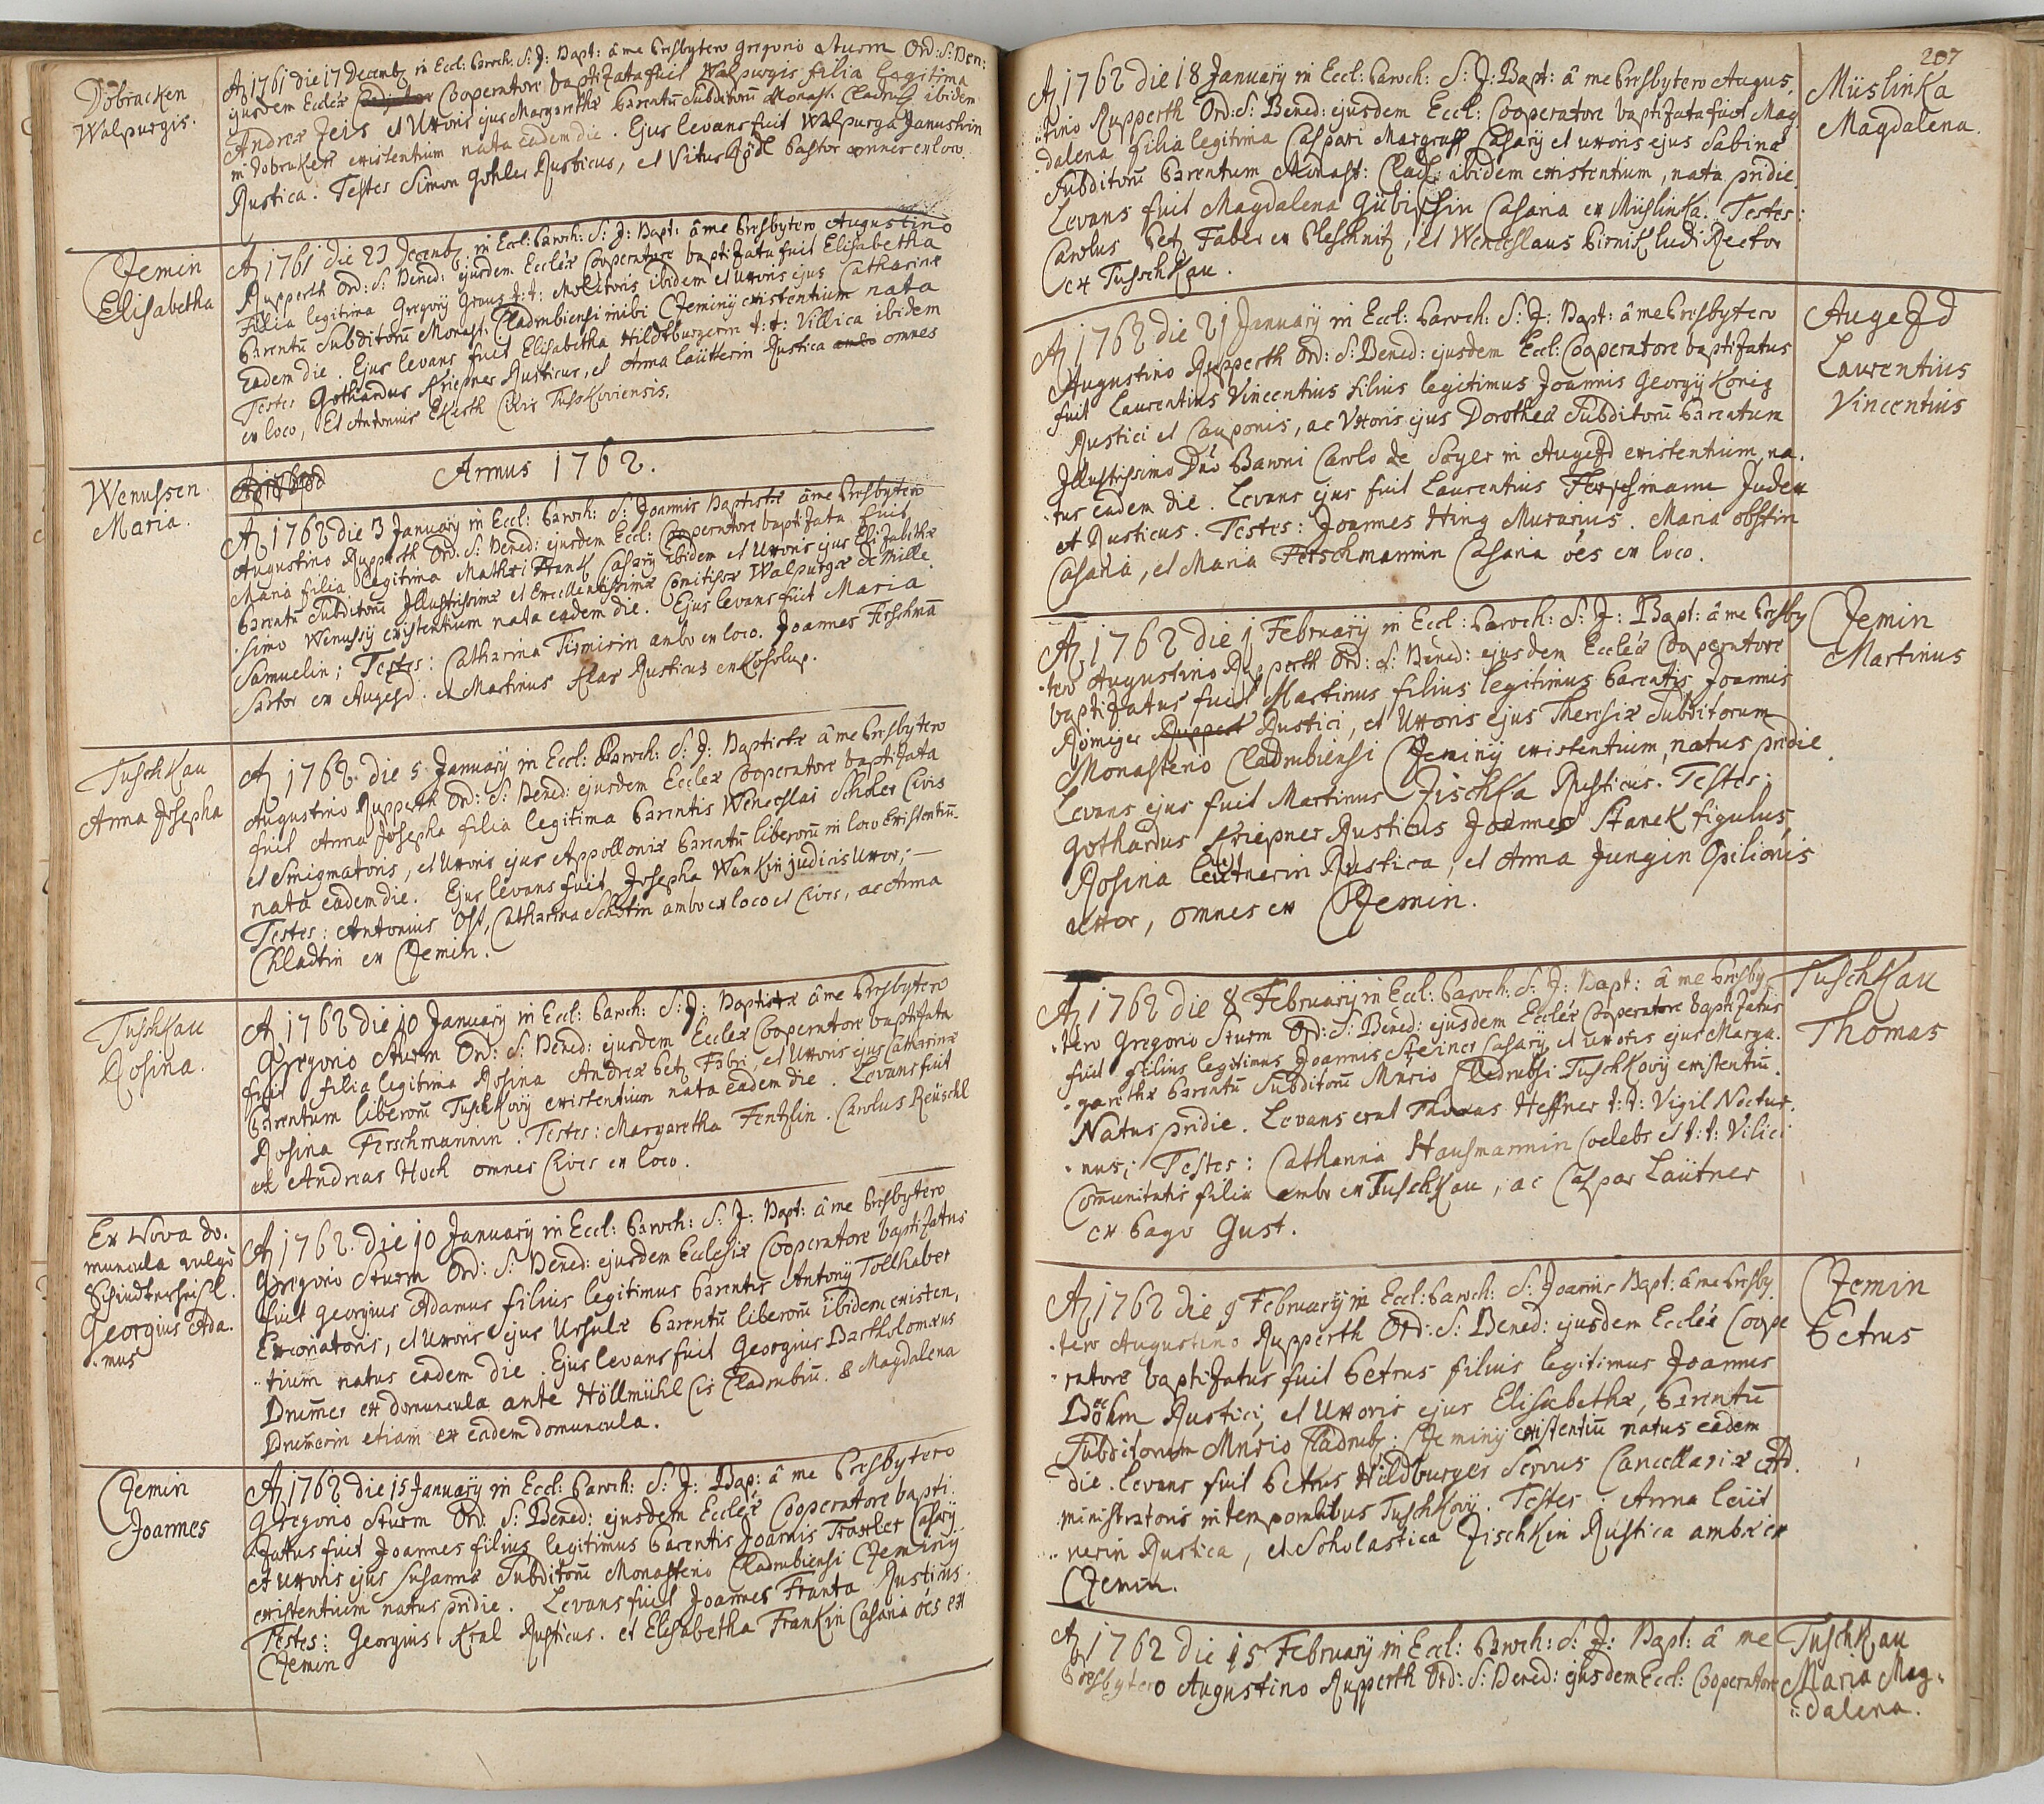 Dobracken
Walpurgis.
A̅ 1761 die 17 Decemb̅ in Eccl: Paroch: S: J: Bapt: â me Presbytero Gregorio Sturm Ord: S: Ben:
ejusdem Eccl͠æ Cooperatore baptizata fuit Walpurgis filia legitima
Andreæ Zeis et Uxoris ejus Margarethæ Parentu̅ Subditoru̅ Monast. Cladrub. ibidem
in Dobraken existentium nata eadem die. Ejus levans fuit Walpurga Janushin
Rustica. Testes Simon Gohler Rusticus, et Vitus Pastor omnes ex loco.
Czemin
Elisabetha
A̅ 1761 die 23 Decemb̅ in Eccl: Paroch: S: J: Bapt: â me Presbytero Augustino
Rupperth Ord: S: Bened: ejusdem Eccl͠æ Cooperatore baptizata fuit Elisabetha
Filia legitima Gregorij Graus t: t: Molitoris ibidem et Uxoris ejus Catharinæ
Parentu̅ Subditoru̅ Monast. Cladrubiensi inibi Czeminij existentium nata
Eadem die. Ejus levans fuit Elisabetha Hildtburgerin t: t: Villica ibidem
Testes Gothardus Kriepner Rusticus, et Anna Laütterin Rustica ambo omnes
ex loco, Et Antonius Ekerth Civis Tuskoviensis.
Annus 1762.
Wenussen
Maria.
A̅ 1762 die 3 January in Eccl: Paroch: S: Joannis Baptistæ âme Presbytero
Augustino Rupperth Ord: S: Bened: ejusdem Eccl: Cooperatore baptizata fuit
Maria filia legitima Mathæi Frank Casarij ibidem et Uxoris ejus Elizabethæ
Parentu̅ Subditoru̅ Illustrissimæ et Excellentissimæ Comitissæ Walpurgæ de Mille
simo Wenussij existentium nata eadem die. Ejus levans fuit Maria
Samuelin; Testes: Catharina Tirmirin ambo ex loco. Joannes Ferschma̅
Sartor ex Augezd. et Martinus Klar Rusticus ex Kosolup.
Tuschkau
Anna Josepha
A̅ 1762. die 5 January in Eccl: Paroch: S: J: Baptistæ âme Presbytero
Augustino Rupperth Ord: S: Bened: ejusdem Ecclæ Cooperatore baptizata
fuit Anna Josepha filia legitima Parentis Wenceslai Scholer Civis
et Smigmatoris, et Uxoris ejus Appolloniæ Parentu̅ liberoru̅ in loco Existentiu̅
nata eadem die. Ejus levans fuit Josepha Wankin judicis Uxor;
Testes: Antonius Ost, Catharina Schotin ambo ex loco et Cives, ac Anna
Chladtin ex Czemin.
Tuschkau
Rosina.
A̅ 1762 die 10 January in Eccl: Paroch: S: J: Baptistæ âme Presbytero
Gregorio Sturm Ord: S: Bened: ejusdem Ecclæ Cooperatore baptizata
fuit filia legitima Rosina Andreæ Petz Fabri, et Uxoris ejus Catharinæ
Parentum liberoru̅ Tuschkovij existentium nata eadem die. Levans fuit
Rosina Ferschmannin. Testes: Margaretha Fentzlin. Carolus Reüschl
et Andreas Hoch omnes Cives ex loco.
Ex Nova do.
muncula vulgo
Schindterheisl.
Georgius Ada.
mus
A̅ 1762. die 10 January in Eccl: Paroch: S: J: Bapt: â me Presbytero
Gregorio Sturm Ord: S: Bened: ejusdem Ecclesiæ Cooperatore baptizatus
fuit Georgius Adamus filius legitimus Parentis Antonij Tollhaber
Excoriatoris, et Uxoris ejus Ursulæ Parentu̅ liberoru̅ ibidem existen,
tium natus eadem die. Ejus levans fuit Georgius Bartholomæus
Drum̅er ex domuncula ante Höllmühl Cis Cladrubiu̅. & Magdalena
Drum̅erin etiam ex eadem domuncula.
Czemin
Joannes
A̅ 1762 die 15 January in Eccl: Paroch: S: J: Bap: â me Presbytero
Gregorio Sturm Ord: S: Bened: ejusdem Ecclæ Cooperatore bapti.
zatus fuit Joannes filius legitimus Parentis Joannis Traxler Casarij
et Uxoris ejus Susannæ Subditoru̅ Monasterio Cladrubiensi Czeminij
existentium natus pridie. Levans fuit Joannes Franta Rusticus.
Testes: Georgius Kral Rusticus. et Elisabetha Frankin Casaria o̅es ex
Czemin
207
Müslinka
Magdalena.
A̅ 1762 die 18 January in Eccl: Paroch: S: J: Bapt: â me Presbytero Augus.
tino Rupperth Ord: S: Bened: ejusdem Eccl: Cooperatore baptizata fuit Mag
dalena filia legitima Caspari Margraff Casarij et uxoris ejus Sabinæ
Subditoru̅ Parentum Monast: Clad: ibidem existentium, nata pridie.
Levans fuit Magdalena Gübischin Casaria ex Müslinka. Testes:
Carolus Petz Faber ex Pleschnitz, et Wenceslaus Pirnik ludi Rector
ex Tuschkau.
Augezd
Laurentius
Vincentius
A̅ 1762 die 21 January in Eccl: Paroch: S: J: Bapt: âme Presbytero
Augustino Rupperth Ord: S: Bened: ejusdem Eccl: Cooperatore baptizatus
fuit Laurentius Vincentius filius legitimus Joannis Georgij König
Rustici et Cauponis, ac Uxoris ejus Dorotheæ Subditoru̅ Parentum
Illustrissimo Dn̅o Baroni Carolo de Soyer in Augezd existentium, na.
tus eadem die. Levans ejus fuit Laurentius Ferschmann Judex
et Rusticus. Testes: Joannes Hing Murarius. Maria Obstin
Casaria, et Maria Ferschmannin Casaria o̅es ex loco.
Czemin
Martinus
A̅ 1762 die 1 February in Eccl: Paroch: S: J: Bapt: âme Presby
tero Augustino Rupperth Ord: S: Bened: ejusdem Ecclæ Cooperatore
baptizatus fuit Martinus filius legitimus Parentis Joannis
Römiger Ruppert Rustici, et Uxoris ejus Theresiæ Subditorum
Monasterio Cladrubiensi Czeminij existentium, natus pridie.
Levans ejus fuit Martinus Zischka Rusticus. Testes:
Gothardus Kriepner Rusticus Joannes Stanek figulus,
Rosina Leütnerin Rustica, et Anna Jungin Opilionis
uxor, omnes ex Czemin.
Tuschkau
Thomas
A̅ 1762 die 8 February in Eccl: Paroch: S: J: Bapt: â me Presby,
tero Gregorio Sturm Ord: S: Bened: ejusdem Ecclæ Cooperatore baptizatus
fuit filius legitimus Joannis Steiner Casarij, et uxoris ejus Marga.
garethæ Parentu̅ Subditoru̅ Mn̅rio Cladrubsi Tuschkovij existentiu̅.
Natus pridie. Levans erat Thomas Heffner t: t: Vigil Noctur.
nus; Testes: Catharina Hausmannin Coelebs et t: t: Vilici
Com̅unitatis filia ambo ex Tuschkau, ac Caspar Laütner
ex Pago Gust.
Czemin
Petrus
A̅ 1762 die 9 February in Eccl: Paroch: S: Joannis Bapt: âme Presby.
tero Augustino Rupperth Ord: S: Bened: ejusdem Ecclæ Coope
ratore baptizatus fuit Petrus filius legitimus Joannis
Böhm Rustici, et Uxoris ejus Elisabethæ, Parentu̅
Subditorum Mn̅rio Cladrub: Czeminij existentiu̅ natus eadem
die. Levans fuit Petrus Hildburger Servus Cancellariæ Ad.
ministratoris in temporalibus Tuschkovij. Testes: Anna Leüt
nerin Rustica, et Scholastica Zischkin Rustica ambæ ex
Czemin.
Tuschkau
Maria Mag
dalena.
A̅ 1762 die 15 February in Eccl: Paroch: S: J: Bapt: â me
Presbytero Augustino Rupperth Ord: S: Bened: ejusdem Eccl: Cooperatore